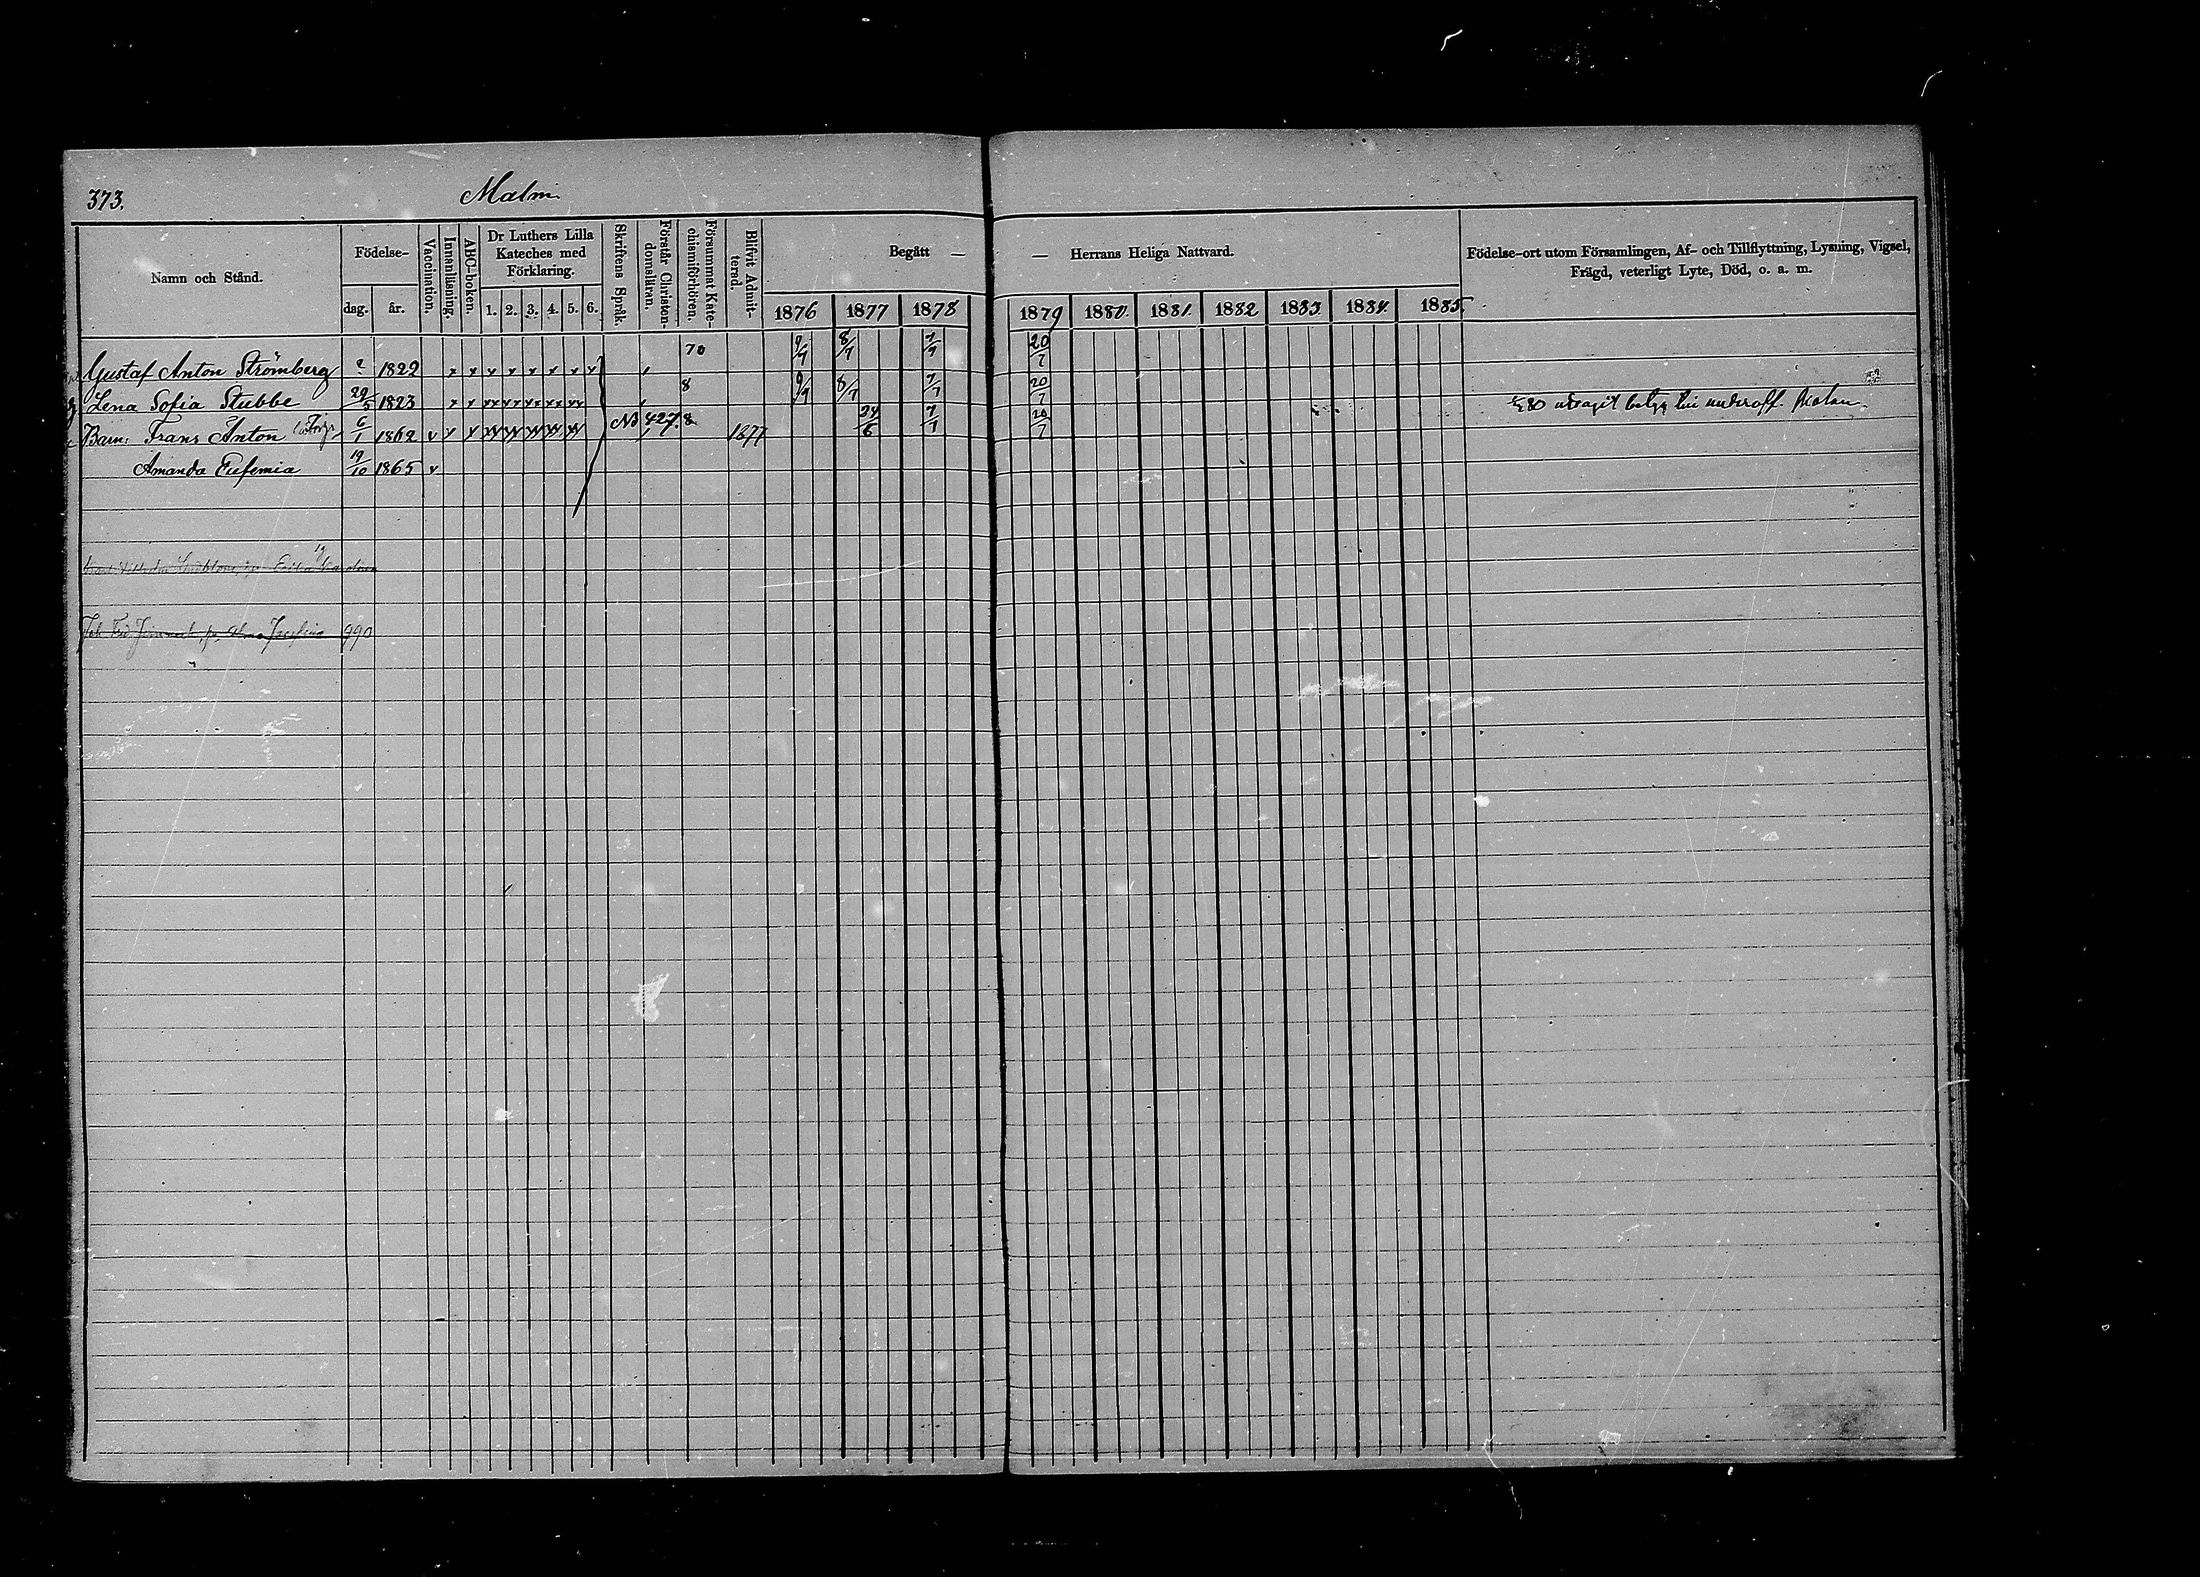 373.
Malm
Namn och Stånd.
Födelse-
dag.
år.
Vaccination.
Innanläsning.
ABC-boken.
Dr Luthers Lilla
Kateches med
Förklaring.
1. 2. 3. 4. 5. 6.
Skriftens Språk.
Förstår Christen-
domsläran.
Försummat Kate-
chismiförhören.
Blifvit Admit-
terad.
Begått —
— Herrans Heliga Nattvard.
Födelse-ort utom Församlingen, Af- och Tillflyttning, Lysning, Vigsel,
Frägd, veterligt Lyte, Död, o. a. m.
1876 1877 1878 1879 1880. 1881. 1882 1883. 1884. 1885.
Gustaf Anton Strömberg ? 1822 x x x x x x x x 70 9/7 8/7 7/7 20/7
Lena Sofia Stubbe 29/5 1823 x x xx xx xx xx xx 8 9/7 8/7 7/7 20/7
Barn: Frans Anton 6/1 1862 v x x NB 427. 8 1877 24/6 7/7 20/7
Amanda Eufemia 19/10 1865 v
990